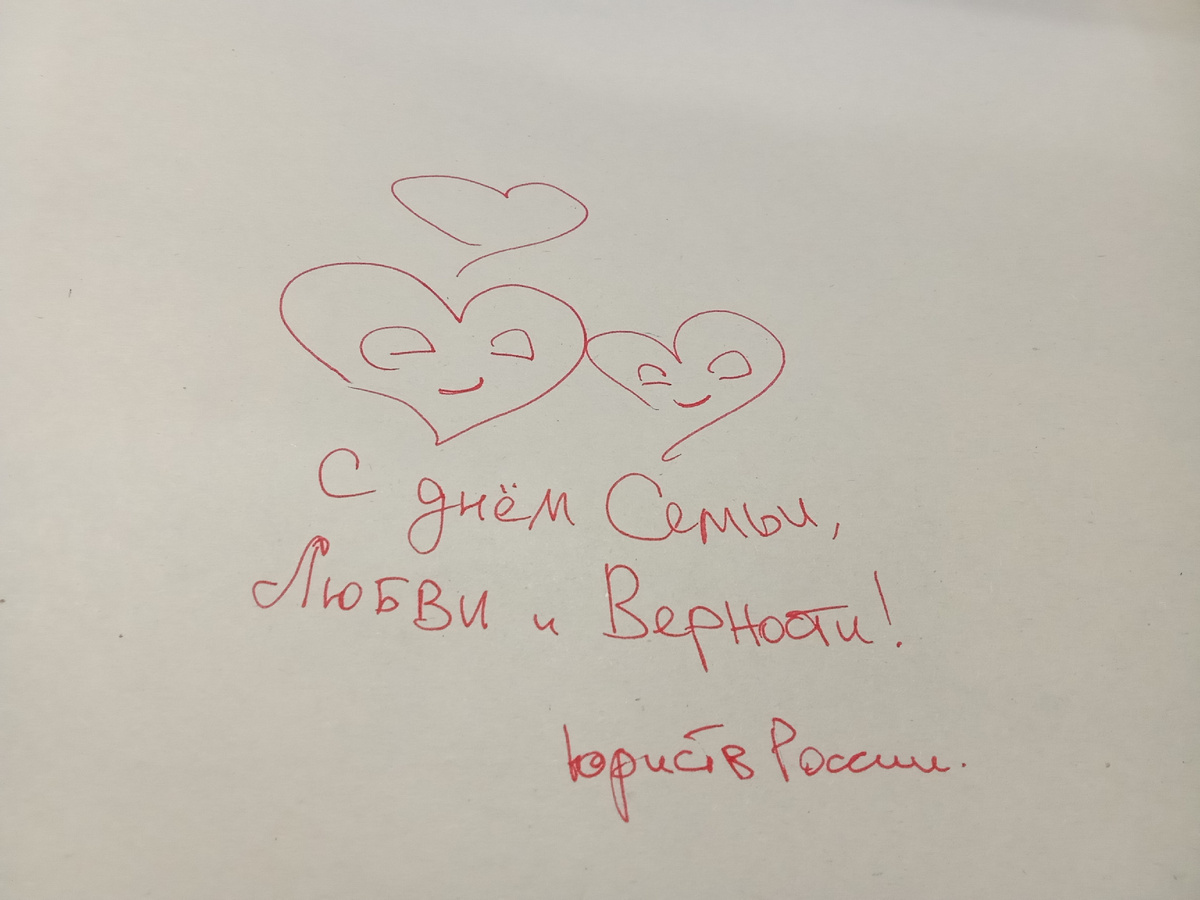 С днём Семьи,
Любви и Верности!
Юристъ России.